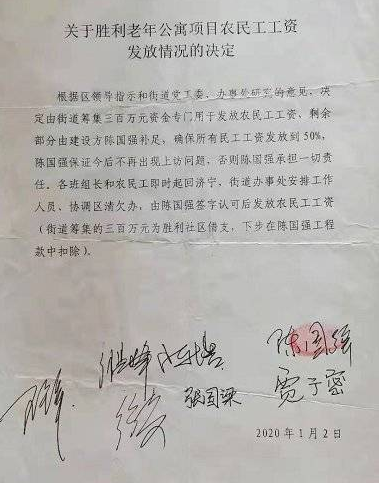 关于胜利老年公寓项目农民工工资
发放情况的决定
根据区领导指示和街道党工委、办事处研究的意见，决
定由街道筹集三百万元资金专门用于发放农民工工资，剩余
部分由建设方陈国强补足，确保所有民工工资发放到50%，
陈国强保证今后不再出现上访问题，否则陈国强承担一切责
任。各班组长和农民工即时起回济宁，街道办事处安排工作
人员、协调区清欠办，由陈国强签字认可后发放农民工工资
（街道筹集的三百万元为胜利社区借支，下步在陈国强工程
款中扣除）。
陈国强
张国梁
贾子密
2020年1月2日